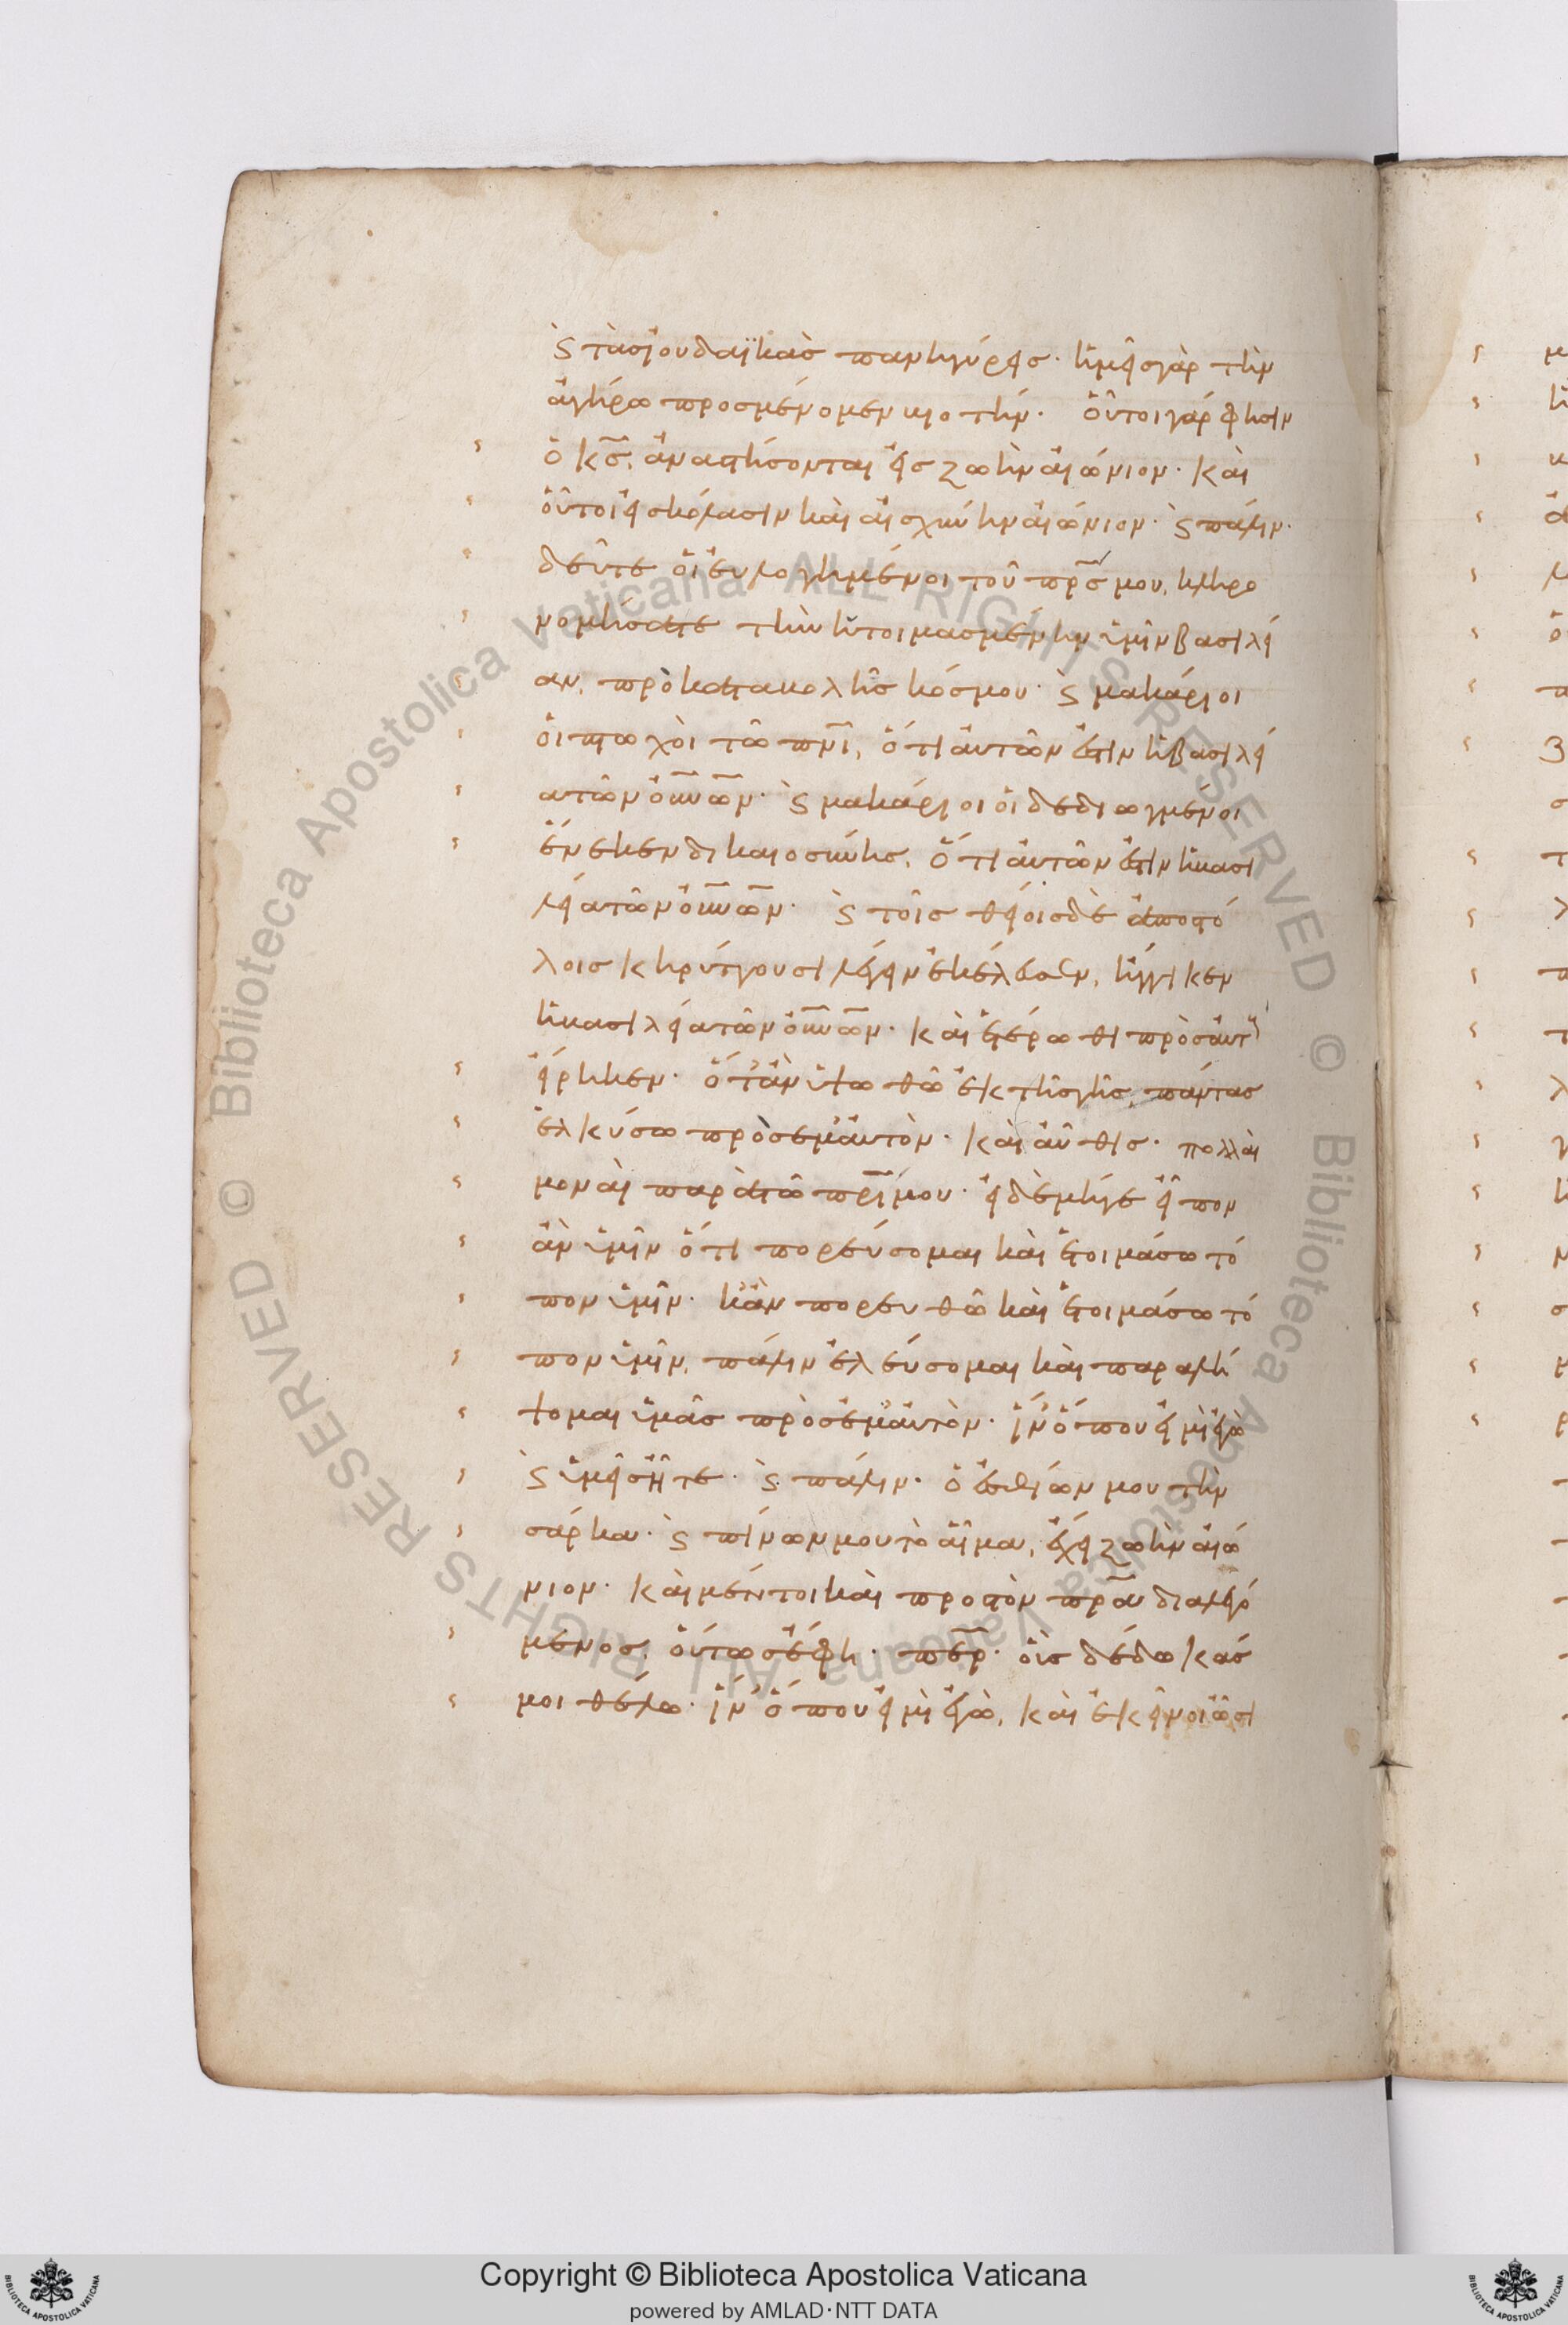 ϗ τὰς ἰουδαϊκὰς πανηγύρεις· ἡμεῖς γὰρ τὴν
ἀγήρω προσμένομεν νεοτήν· οὗτοι γάρ φησιν
ὁ κς, ἀναστήσονται εἰς ζωὴν αἰώνιον· καὶ
οὗτοι εἰς κόλασιν καὶ αἰσχύνην αἰώνιον· ϗ πάλιν·
δεῦτε οἱ εὐλογημένοι τοῦ πρς μου, κληρο
νομήσατε τὴν ἡτοιμασμένην ὑμῖν βασιλεί
αν, πρὸ καταβολῆς κόσμου· ϗ μακάριοι
οἱ πτωχοὶ τῶ πνι, ὅτι αὐτῶν ἐστιν ἡ βασιλεί
α τῶν οὐνῶν· ϗ μακάριοι οἱ δεδιωγμένοι
ἕνεκεν δικαιοσύνης, ὅτι αὐτῶν ἐστιν ἡ βασι
λεία τῶν οὐνῶν· ϗ τοῖς θείοις δὲ ἀποστό
λοις κηρύττουσι λέγειν ἐκέλευσεν, ἤγγικεν
ἡ βασιλεία τῶν οὐνῶν· καὶ ἑτέρωθι πρὸς αὐτ
εἴρηκεν· ὅτ' ἂν ὑψωθῶ ἐκ τῆς γῆς, πάντας
ἑλκύσω πρὸς ἐμαυτόν· καὶ αὖθις· πολλαὶ
μοναὶ παρὰ τῶ πρι μου· εἰ δὲ μήγε εἶπον
ἂν ὑμῖν ὅτι πορεύσομαι καὶ ἑτοιμάσω τό
πον ὑμῖν· κἂν πορευθῶ καὶ ἑτοιμάσω τό
πον ὑμῖν, πάλιν ἐλεύσομαι καὶ παραλή
ψομαι ὑμᾶς πρὸς ἐμαυτόν· ἵν' ὅπου εἰμὶ ἐγὼ
ϗ ὑμεῖς ἦτε· ϗ πάλιν· ὁ ἐσθίων μου τὴν
σάρκα· ϗ πίνων μου τὸ αἷμα, ἔχει ζωὴν αἰώ
νιον· καὶ μέντοι καὶ πρὸς τὸν πρα διαλεγό
μενος, οὕτως ἔφη· περ· οἷς δέδωκάς
μοι θέλω· ἵν' ὅπου εἰμὶ ἐγὼ, καὶ ἐκεῖνοι ὦσι
Copyright © Biblioteca Apostolica Vaticana
powered by AMLAD·NTT DATA